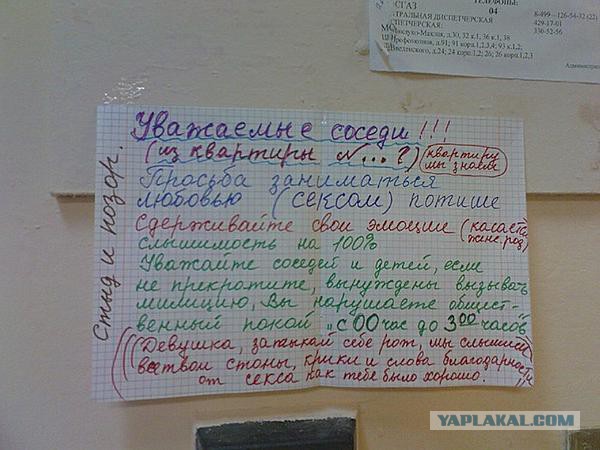 СГАЗ
ТЕЛЕФОНЫ:
04
ТРАЛЬНАЯ ДИСПЕТЧЕРСКАЯ 8-499--126-54-32 (22)
ПЕТЧЕРСКАЯ: 429-17-01
д.30, 32 к.1, 36 к.1, 38 330-52-56
Профсоюзная, д.91; 91 корп.1,2,3,4; 93 к.1,2;
Введенского, д.24; 24 корп.1,2; 26; 26 корп.1,2,3
Администра
Стыд и позор.
Уважаемые соседи !!!
(из квартиры №...?) (квартиру мы знаем)
Просьба заниматься
любовью (сексом) потише
Сдерживайте свои эмоции (касается женс. род)
слышимость на 100%
Уважайте соседей и детей, если
не прекратите, вынуждены вызывать
милицию, Вы нарушаете общест-
венный покой „с 00 час до 3 00 часов"
(((Девушка, затыкай себе рот, мы слышим
все твои стоны, крики и слова благодарности
от секса как тебе было хорошо.))
YAPLAKAL.COM